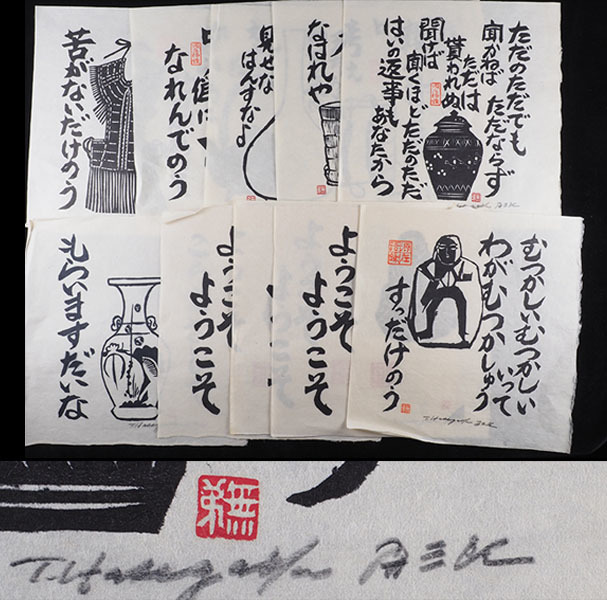 苦がないだけのう
なれんでのう
見せな
はんすなよ
なはれや
ただのただでも
聞かねば ただならず
ただは
貰われぬ
聞けば
聞くほどただのただ
はいの返事も
あなたから
もらいますだいな
ようこそ
ようこそ
ようこそ
ようこそ
むつかしいむつかしい
いって
わがむつかしゅう
すっだけのう
無弟